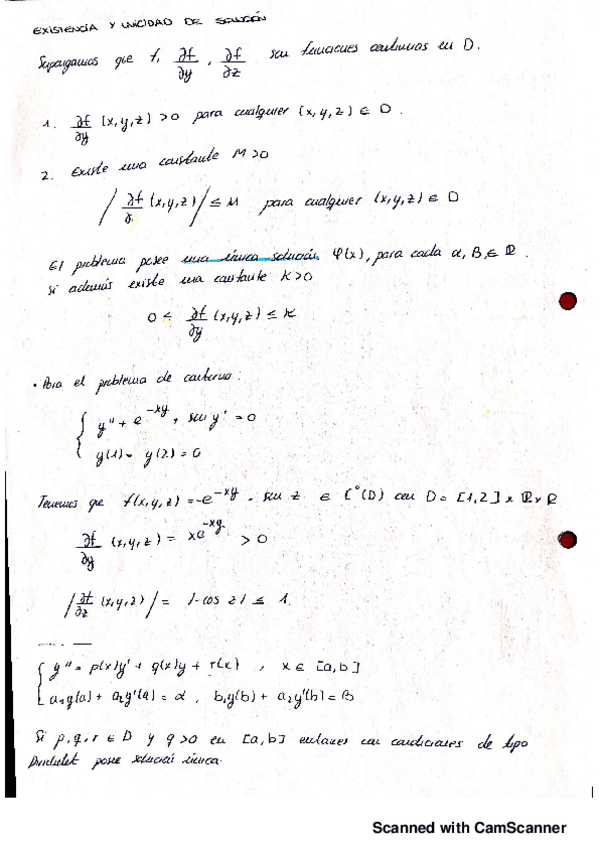 EXISTENCIA Y UNICIDAD DE SOLUCIÓN
Supongamos que f, ∂f/∂y, ∂f/∂z son funciones continuas en D.
1. ∂f/∂y (x,y,z) > 0 para cualquier (x,y,z) ∈ D.
2. Existe una constante M > 0
|∂f/∂ (x,y,z)| ≤ M para cualquier (x,y,z) ∈ D
El problema posee una única solución φ(x), para cada α, B ∈ R.
si además existe una constante K > 0
0 < ∂f/∂y (x,y,z) ≤ K
• Para el problema de contorno:
{ y'' + e^-xy + sen y' = 0
y(1) = y(2) = 0
Tenemos que f(x,y,z) = -e^-xy - sen z ∈ C°(D) con D = [1,2] x R x R
∂f/∂y (x,y,z) = xe^-xy > 0
|∂f/∂z (x,y,z)| = |-cos z| ≤ 1.
{ y'' = p(x)y' + q(x)y + r(x) , x ∈ [a,b]
a₁y(a) + a₂y'(a) = α , b₁y(b) + a₂y'(b) = B
Si p, q, r ∈ D y q > 0 en [a,b] entonces con condiciones de tipo
Dirichlet posee solución única.
Scanned with CamScanner